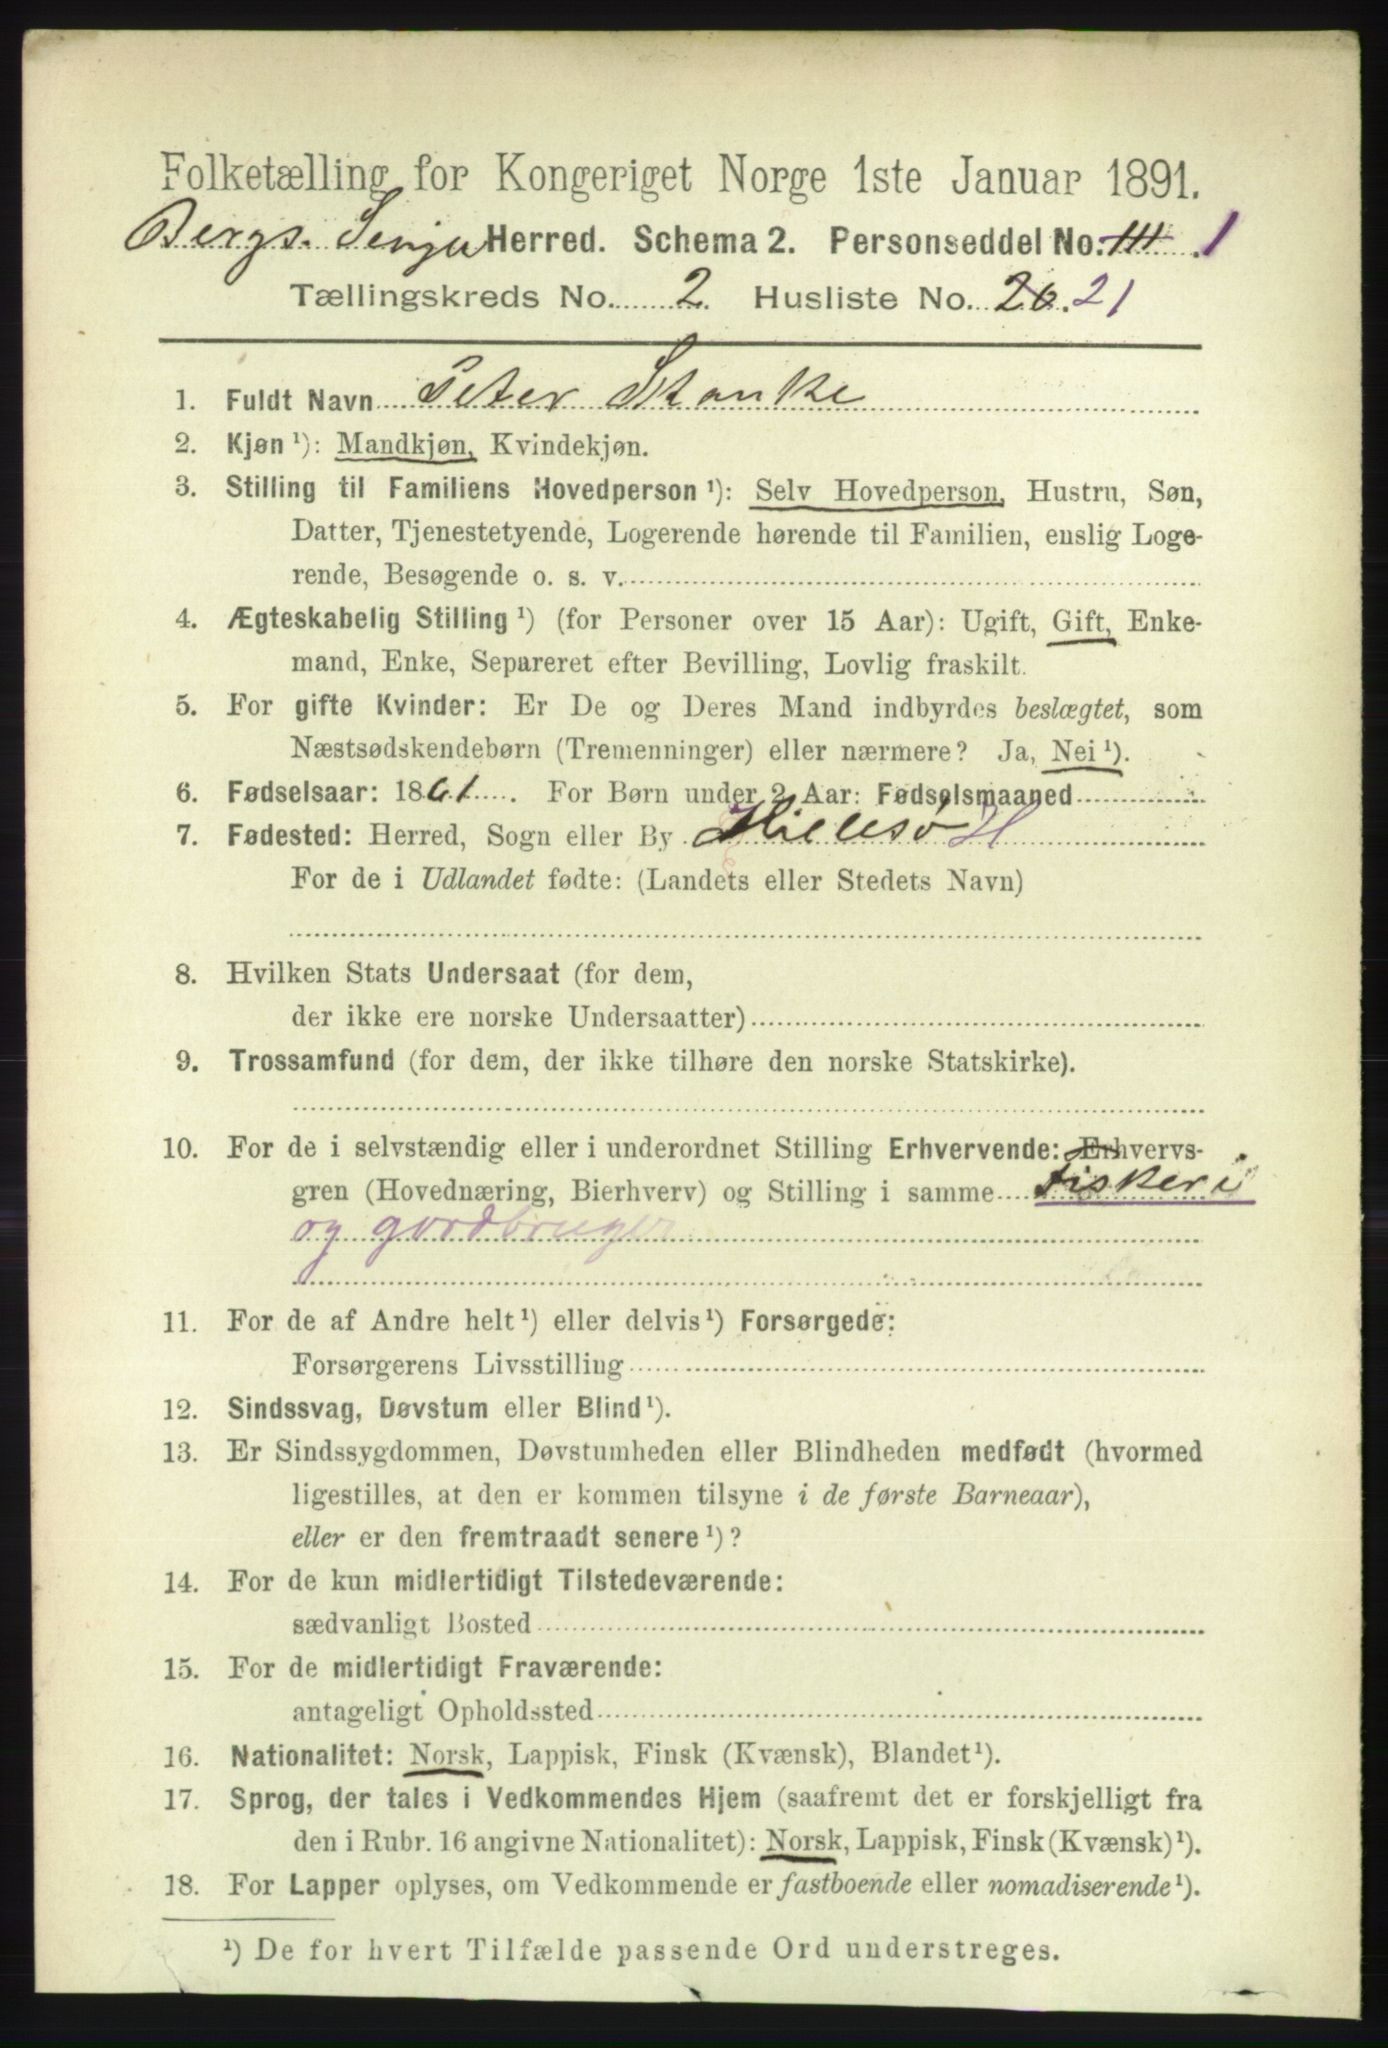 Folketælling for Kongeriget Norge 1ste Januar 1891.
Bergs. Senjen Herred. Schema 2. Personseddel No. III. 1
Tællingskreds No. 2. Husliste No. 20. 21
1. Fuldt Navn Peter Stanke
2. Kjøn ¹): Mandkjøn, Kvindekjøn.
3. Stilling til Familiens Hovedperson ¹): Selv Hovedperson, Hustru, Søn,
Datter, Tjenestetyende, Logerende hørende til Familien, enslig Loge-
rende, Besøgende o. s. v.
4. Ægteskabelig Stilling ¹) (for Personer over 15 Aar): Ugift, Gift, Enke-
mand, Enke, Separeret efter Bevilling, Lovlig fraskilt.
5. For gifte Kvinder: Er De og Deres Mand indbyrdes beslægtet, som
Næstsødskendebørn (Tremenninger) eller nærmere? Ja, Nei ¹).
6. Fødselsaar: 1861. For Børn under 2 Aar: Fødselsmaaned
7. Fødested: Herred, Sogn eller By Hillesø H
For de i Udlandet fødte: (Landets eller Stedets Navn)
8. Hvilken Stats Undersaat (for dem,
der ikke ere norske Undersaatter)
9. Trossamfund (for dem, der ikke tilhøre den norske Statskirke).
10. For de i selvstændig eller i underordnet Stilling Erhvervende: Erhvervs-
gren (Hovednæring, Bierhverv) og Stilling i samme Fiskeri
og gardbruger
11. For de af Andre helt ¹) eller delvis ¹) Forsørgede:
Forsørgerens Livsstilling
12. Sindssvag, Døvstum eller Blind ¹).
13. Er Sindssygdommen, Døvstumheden eller Blindheden medfødt (hvormed
ligestilles, at den er kommen tilsyne i de første Barneaar),
eller er den fremtraadt senere ¹)?
14. For de kun midlertidigt Tilstedeværende:
sædvanligt Bosted
15. For de midlertidigt Fraværende:
antageligt Opholdssted
16. Nationalitet: Norsk, Lappisk, Finsk (Kvænsk), Blandet ¹).
17. Sprog, der tales i Vedkommendes Hjem (saafremt det er forskjelligt fra
den i Rubr. 16 angivne Nationalitet): Norsk, Lappisk, Finsk (Kvænsk) ¹).
18. For Lapper oplyses, om Vedkommende er fastboende eller nomadiserende ¹).
¹) De for hvert Tilfælde passende Ord understreges.